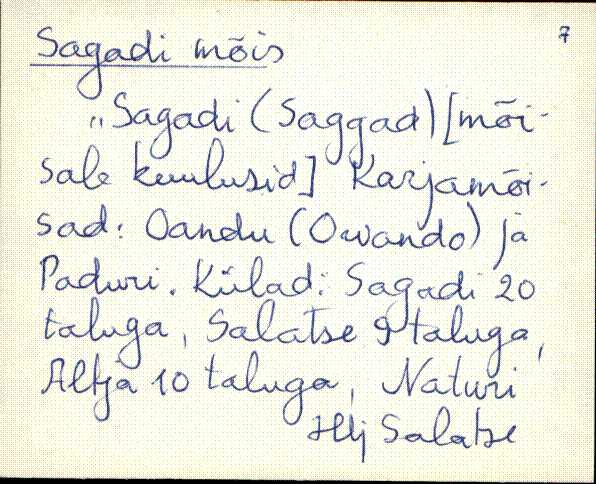 7
Sagadi mõis
„Sagadi (Saggad) [mõi-
sale kuulusid] Karjamõi-
sad: Oandu (Owando) ja
Paduri. Külad: Sagadi 20
taluga, Salatse 9 taluga,
Altja 10 taluga, Naturi
Hlj Salatse